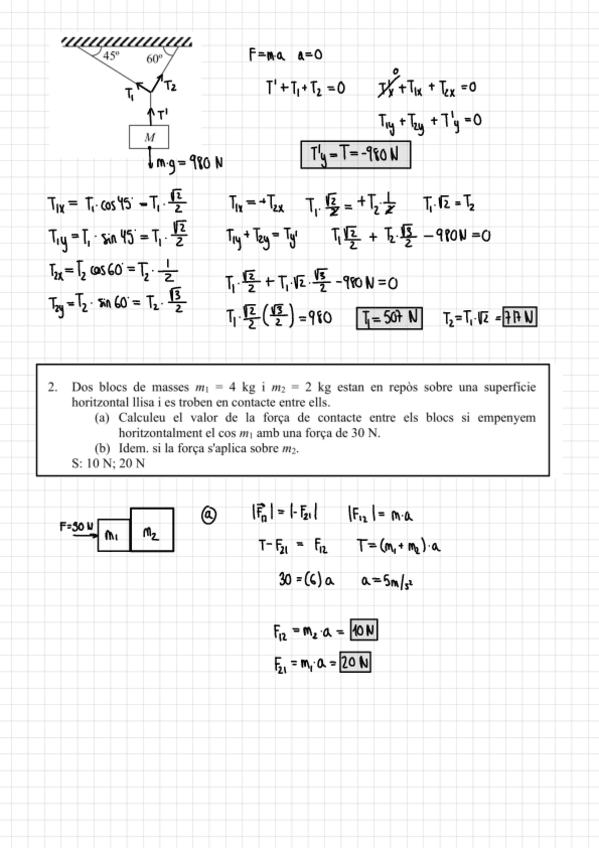 45° 60°
T₁ T₂
T'
M
m·g = 980 N
F=m·a a=0
T' + T₁ + T₂ = 0 T'x⁰ + T₁x + T₂x = 0
T₁y + T₂y + T'y = 0
T'y = T = -980 N
T₁x = T₁· cos 45° = T₁· √2/2 T₁x = +T₂x T₁· √2/2 = +T₂· 1/2 T₁·√2 = T₂
T₁y = T₁· sin 45° = T₁· √2/2 T₁y + T₂y = Ty' T₁ √2/2 + T₂· √3/2 - 980N = 0
T₂x = T₂ cos 60° = T₂· 1/2 T₁· √2/2 + T₁·√2· √3/2 - 980N = 0
T₂y = T₂· sin 60° = T₂· √3/2 T₁· √2/2 (√3/2) = 980 T₁ = 507 N T₂ = T₁·√2 = 717 N
2. Dos blocs de masses m₁ = 4 kg i m₂ = 2 kg estan en repòs sobre una superfície
horitzontal llisa i es troben en contacte entre ells.
(a) Calculeu el valor de la força de contacte entre els blocs si empenyem
horitzontalment el cos m₁ amb una força de 30 N.
(b) Idem. si la força s'aplica sobre m₂.
S: 10 N; 20 N
F=30 N m₁ m₂
a |F₁₂| = |-F₂₁| |F₁₂| = m·a
T - F₂₁ = F₁₂ T = (m₁ + m₂)·a
30 = (6) a a = 5 m/s²
F₁₂ = m₂·a = 10 N
F₂₁ = m₁·a = 20 N